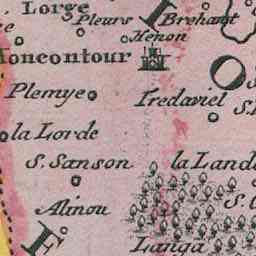 Lorge
Pleurs
Brehant
Henon
Moncontour
Plemye
Tredaviel
la Lorde
S. Sanson
la Land
Alinou
Langa